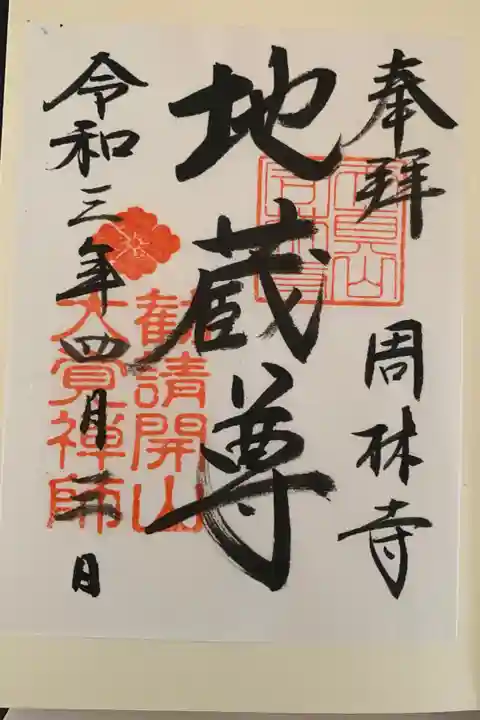 奉拜
周林寺
地蔵尊
令和三年四月二日
勧請開山
大覚禅師